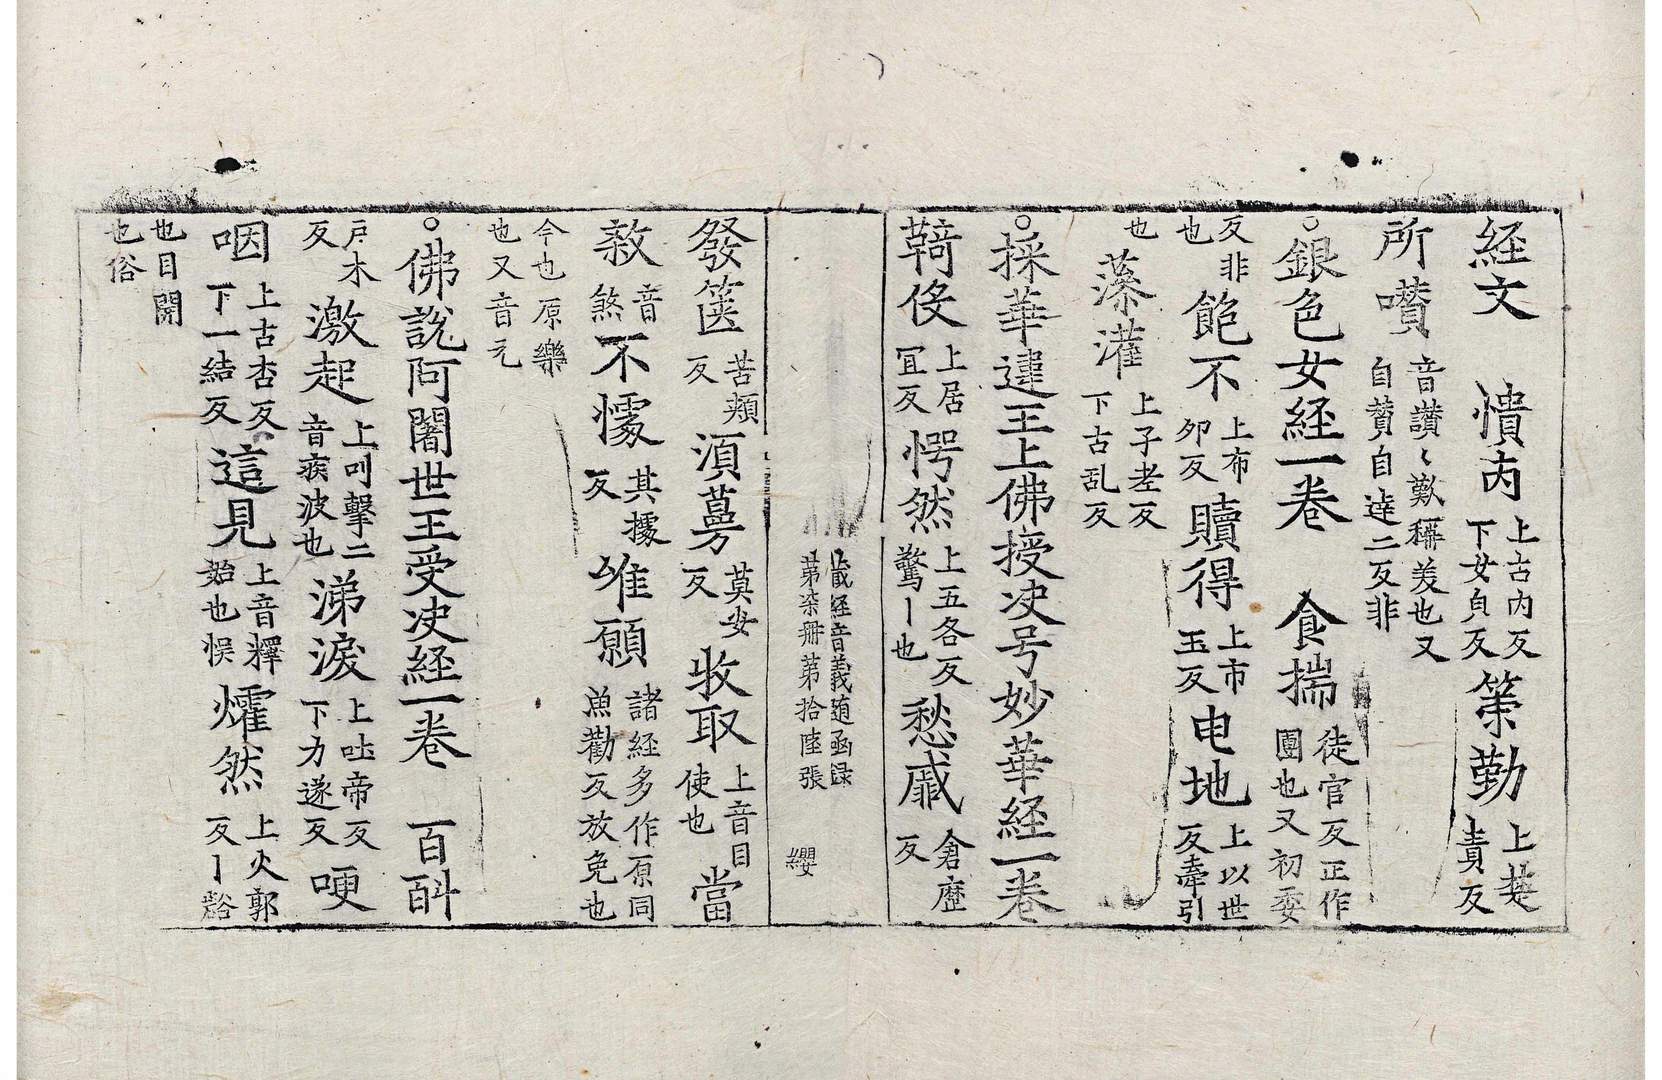 経文　憒丙上古内反下女皃反筞勤上楚責反
所囋音讃讃歎稱羙也又自賛自逹二反非
○銀色女経一卷　食揣徒官反正作團也又初委
反非也飽不上布夘反贖得上市玉反曳地上以世反牽引
也藻灌上子老反下古乱反
○採華違王上佛授决号妙華経一卷
鞛侫上居冝反愕然上五各反驚丨也愁戚倉歷反
藏経音義随函録
第柒冊第拾陸張
纓
發箧苦頰反湏蔓莫安反收取上音目使也當
敎音煞不懅其據反唯願諸経多作原同魚勸反放免也
今也原樂也又音元
○佛說阿闍世王受决経一卷　百斛
戶木反激起上叫擊二音疾波也涕淚上吐帝反下力遂反哽
咽上古杏反下一結反這見上音釋始也悮㸌然上火郭反丨谿
也目開也俗